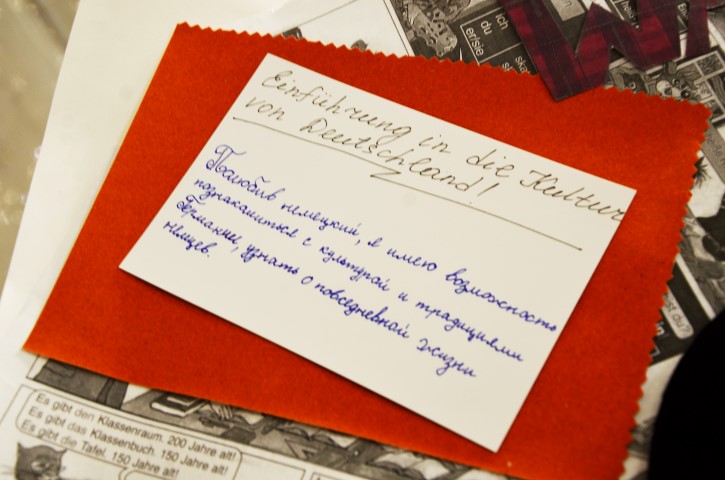 ich
du
er/sie
Einführung in die Kultur
von Deutschland!
Полюбив немецкий, я имею возможность
познакомиться с культурой и традициями
Германии, узнать о повседневной жизни
немцев.
Es gibt den Klassenraum. 200 Jahre alt!
Es gibt das Klassenbuch. 150 Jahre alt!
Es gibt die Tafel. 150 Jahre alt!